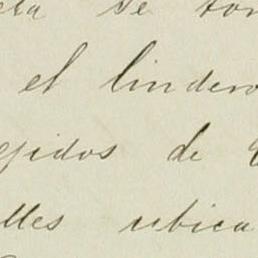 se
el lindero
ejidos de
lles ubica